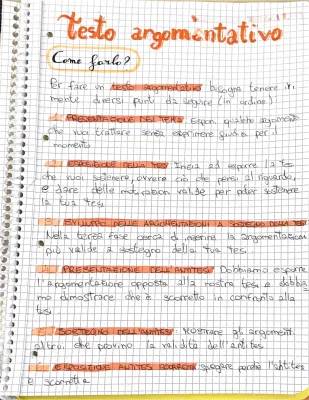 testo argomentativo
Come farlo?
Per fare un testo argomentativo bisogna tenere in
mente diversi punti da seguire (in ordine)
1. PRESENTAZIONE DEL TEMA: Espon. qualche argomento
che vuoi trattare senza esprimere giudizi per il
momento
2. ESPOSIZIONE DELLA TESI: Inizia ad esporre la tesi
che vuoi sostenere, ovvero ciò che pensi al riguardo,
e dare delle motivazioni valide per poter sostenere
la tua tesi.
3. SVILUPPO DELLE ARGOMENTAZIONI A SOSTEGNO DELLA TESI
Nella terza fase cerca di inserire le argomentazioni
più valide a sostegno della tua tesi
4. PRESENTAZIONE DELL'ANTITESI: Dobbiamo esporre
l'argomentazione opposta alla nostra tesi e dobbia
mo dimostrare che è scorretto in confronto alla
tesi
5. SOSTEGNO DELL'ANTITESI: Mostrare gli argomenti
altrui che provino la validità dell'antitesi
6. ESPOSIZIONE ANTITESI SCORRETTA: spiegare perché l'antitesi
è scorretta